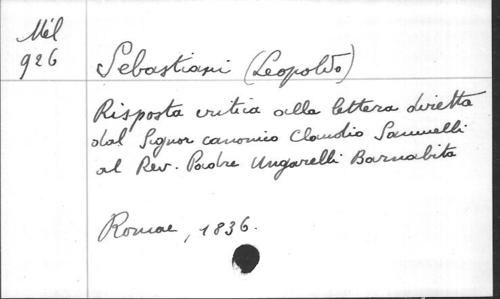 Mél
926
Sebastiani (Leopoldo)
Risposta critica alla lettera diretta
dal Signor canonico Claudio Samuelli
al Rev. Padre Ungarelli Barnabita
Romae, 1836.